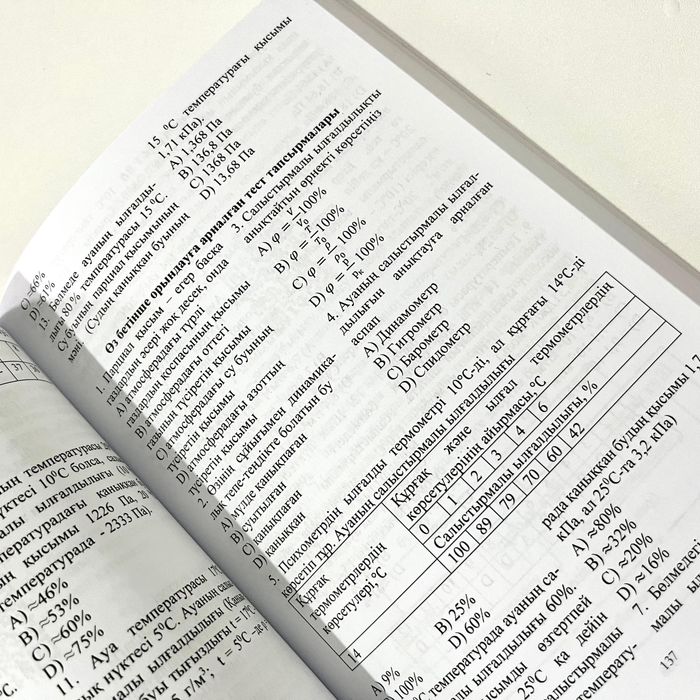 15 °C температурағы қысымы
1,71 кПа).
A) 1,368 Па
B) 136,8 Па
C) 1368 Па
D) 13,68 Па
C) ≈66%
D) ≈61%
13. Бөлмеде ауаның ылғалды-
лығы 80 % температурасы 15 °C.
Су буының парциал қысымының
(Судың қаныққан буының
Өз бетінше орындауға арналған тест тапсырмалары
1. Парциал қысым – егер басқа
газдардың әсері жоқ десек, онда
A) атмосферадағы түрлі
газдардың қоспасының қысымы
B) атмосферадағы оттегі
газының түсіретін қысымы
C) атмосферадағы су буының
түсіретін қысымы
D) атмосферадағы азоттың
түсіретін қысымы
2. Өзінің сұйығымен динамика-
лық тепе-теңдікте болатын бу
A) мүлде қанықпаған
B) суытылған
C) қанықпаған
D) қаныққан
3. Салыстырмалы ылғалдылықты
анықтайтын өрнекті көрсетіңіз
A) φ = V/V₀ 100%
B) φ = T/T₀ 100%
C) φ = P₀/P 100%
D) φ = P/Pк 100%
4. Ауаның салыстырмалы ылғал-
дылығын анықтауға арналған
аспап
A) Динамометр
B) Гигрометр
C) Барометр
D) Спидометр
5. Психрометрдің ылғалды термометрі 10°C-ді, ал құрғағы 14°C-ді
көрсетіп тұр. Ауаның салыстырмалы ылғалдылығы
Құрғақ
термометрлердің
көрсетулері, °C
Құрғақ және ылғал термометрлердің
көрсетулерінің айырмасы,°C
0 1 2 3 4 6
Салыстырмалы ылғалдылығы,%
14 100 89 79 70 60 42
A) 9%
B) 25%
D) 60%
температурада ауаның са-
ылғалдылығы 60%.
өзгертпей
25°C қа дейін
рада қаныққан будың қысымы 1,7
кПа, ал 25°C-та 3,2 кПа)
A) ≈80%
B) ≈32%
C) ≈20%
D) ≈16%
7. Бөлмедегі
137
нүктесі 10⁰C болса,
қысымы 1226 Па, 20
температурада - 2333 Па).
A) ≈46%
B) ≈53%
C) ≈60%
D) ≈75%
11. Ауа температурасы
нүктесі 5°C. Ауаның
ылғалдылығы
буы тығыздығы t = 17°C
г/м³; t = 5°C